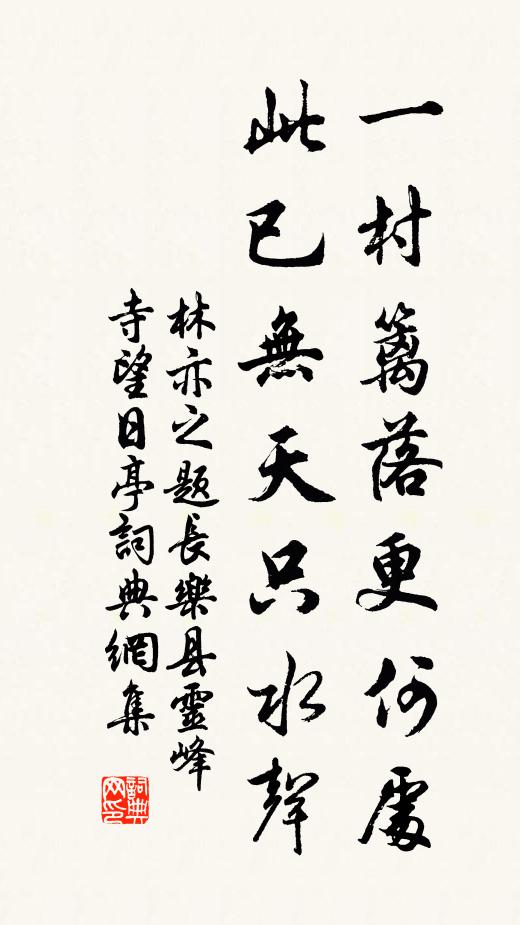 一村籬落更何處
此已無天只水聲
林亦之題長樂县靈峰
寺望日亭詞典網集
詞典网印